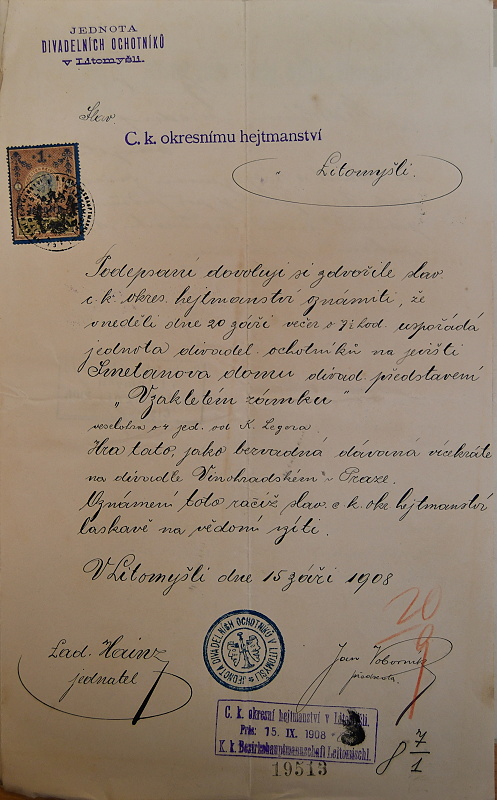 JEDNOTA
DIVADELNÍCH OCHOTNÍKŮ
v Litomyšli.
Slav.
C. k. okresnímu hejtmanství
v Litomyšli.
1
Podepsaní dovolují si zdvořile slav.
c. k. okres. hejtmanství oznámiti, že
v neděli dne 20 září večer o 7½ hod. uspořádá
jednota divadel. ochotníků na jevišti
Smetanova domu divad. představení
„Vzakletém zámku"
veselohra o 4 jed. od K. Legera
Hra tato, jako bezvadná dávaná vícekráte
na divadle Vinohradském v Praze.
Oznámení toto račiž slav. c. k. okr. hejtmanství
laskavě na vědomí vzíti.
V Litomyšli dne 15 září 1908
Lad. Hainz
jednatel
JEDNOTA DIVADELNÍCH OCHOTNÍKŮ V LITOMYŠLI
Jan Voborník
předseda.
20
9
C. k. okresní hejtmanství v Litomyšli.
Präs: 15. IX. 1908
K. k. Bezirkshauptmannschaft Leitomischl.
19513
8 7/1